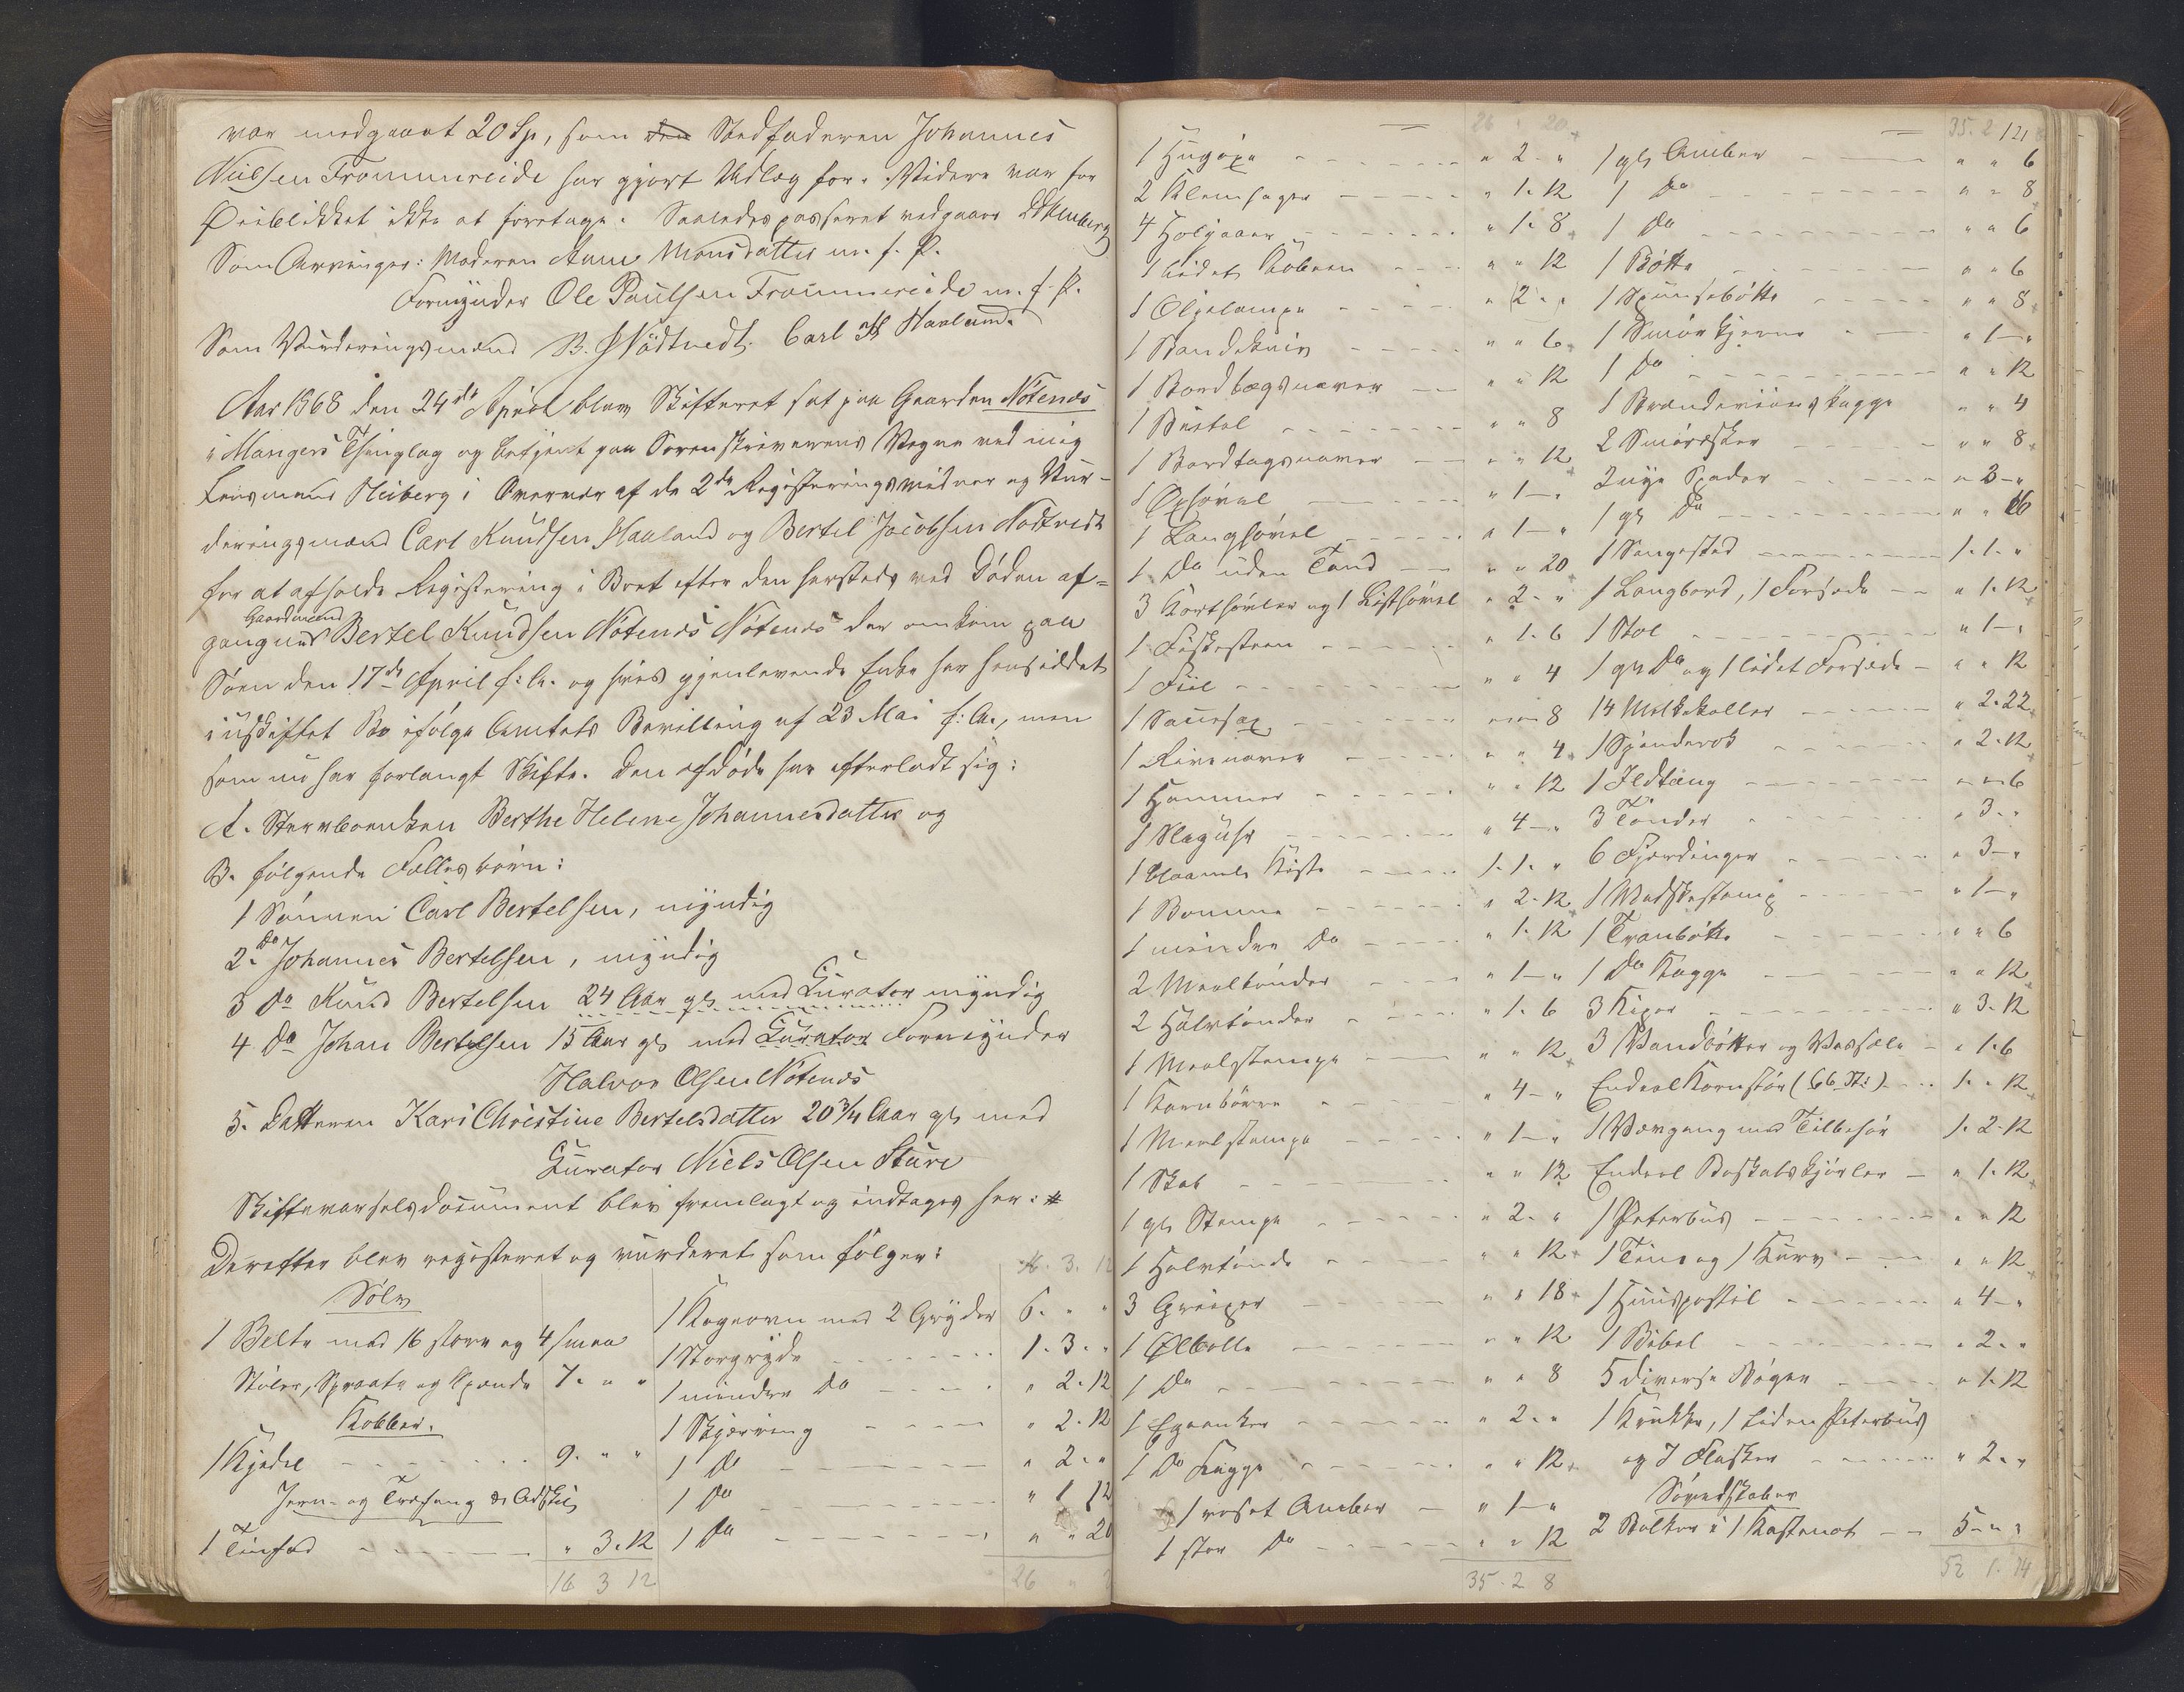 var medgaaet 20 Sp, som den Stedfaderen Johannes
Nielsen Frommereide har gjort Udlæg for. Videre var for
Øieblikket ikke at foretage. Saaledes passeret vedgaaes Heiberg
Som Arvinger: Moderen Anne Monsdatter m. f. P.
Formynder Ole Poulsen Frommereide m. f. P.
Som Vurderingsmænd B. J Nödtvedt. Carl K Haaland.
Aar 1868 den 24de April blev Skifteret sat paa Gaarden Nötenes
i Mangers Thinglag og betjent paa Sorenskriverens Vegne ved mig
Lensmand Heiberg i Overvær af de 2de Registeringsvidner og Vur-
deringsmænd Carl Knudsen Haaland og Bertel Jacobsen Nodtvedt
for at afholde Registering i Boet efter den hersteds ved Døden af-
Gaardmand
gangne Bertel Knudsen Nötenes Nötenes der omkom paa
Søen den 17de April f: A. og hvis gjenlevende Enke har hensiddet
i uskiftet Bo ifølge Amtets Bevilling af 23 Mai f: A., men
som nu har forlangt Skifte. Den afdøde har efterladt sig:
A. Stervboenken Berthe Helene Johannesdatter og
B. følgende Fællesbørn:
1 Sønnen Carl Bertelsen, myndig
2. Do Johannes Bertelsen, myndig
3 Do Knud Bertelsen 24 Aar gl med Curator myndig
4 Do Johan Bertelsen 15 Aar gl med Curator Formynder
Halvor Olsen Nötenes
5. Datteren Kari Christine Bertelsdatter 20 3/4 Aar gl med
Curator Niels Olsen Sture
Skiftevarselsdocument blev fremlagt og indtages her: #
Derefter blev registeret og vurderet som følger:
Sølv
1 Belte med 16 store og 4 smaa
Støler, Sproate og Spænde 7. " "
Kobber.
1 Kjedel 9. " "
Jern- og Træfang & Adskil
1 Tinfad " 3. 12
16 3 12
16. 3. 12
1 Kogeovn med 2 Gryder 6. " "
1 Storgryde 1. 3. "
1 mindre Do " 2. 12
1 Skjærring " 2. 12
1 Do " 2. "
1 Do " 1 12
1 Do " " 20
26 "
26 " 20
1 Hugøxe " 2. "
2 " 1. 12
4 Holjaarn " 1. 8
1 lidet " " 12
1 Oljelampe " 2. "
1 Bandekniv " " 6
1 Bordlægsnaver " " 12
1 Bustol " " 8
1 Bordtagsnaver " " 12
1 Oxhøvel " 1 "
1 Langhøvel " 1 "
1 Do uden Tand " " 20
3 Korthøvler og 1 Listhøvel " 2. "
1 Fiskesteen " 1. 6
1 Fiil " " 4
1 Sauesax " " 8
1 Rivenaver " " 4
1 Hammer " " 12
1 Slaguhr " 4 "
1 blaamalt Kiste 1. 1. "
1 Bomme " 2. 12
1 mindre Do " 1. 12
2 Meeltønder " 1 "
2 Halvtønder " 1. 6
1 Meelstampe " " 12
1 Kornbørre " 4 "
1 Meelstampe " 1 "
1 Skab " " 12
1 gl Stampe " 2. "
1 Halvtønde " " 12
3 Greiper " " 18
1 Ølbolle " " 12
1 Do " " 8
1 Egeanker " 2. "
1 Do Kagge " " 12
1 roset Amber " 1 "
1 stor Do " " 12
35. 2 8
35. 2 121
1 gl Amber " " 6
1 Do " " 8
1 Do " " 6
1 Bøtte " " 6
1 Spunsebøtte " " 8
1 Smørkjerne " 1 "
1 Do " " 12
1 Brændeviins Kagge " " 4
2 Smøræsker " " 8
2 nye Spader " 3 "
1 gl Do " " 16
1 Sengested 1. 1. "
1 Langbord, 1 Forsæde " 1. 12
1 Stol " 1 "
1 gl Do og 1 lidet Forsæde " " 12
14 Melkekoller " 2. 22
1 Spinderok " 2. 12
1 Ildtang " " 6
3 Tønder " 3. "
6 Fjerdinger " 3 "
1 Vadskestamp " 1 "
1 Tranbøtte " " 6
1 Do Kagge " " 12
3 Kiper " 3. 12
3 Vandbøtter og Vassele " 1. 6
Endeel Kornstør (66 St:) 1. " 12
1 Vævgang med Tilbehør 1. 2. 12
Endeel Boskabskjørler " 1. 12
1 Peterbus " " 12
1 Tine og 1 Kurv " " 12
1 Huuspostil " 4 "
1 Bibel " 2. "
5 diverse Bøger " 1. 12
1 Krukke, 1 liden Peterbus
og 7 Flasker " 2. "
Søredskaber
2 Bolker i 1 Kastenot 5 " "
52 1. 14